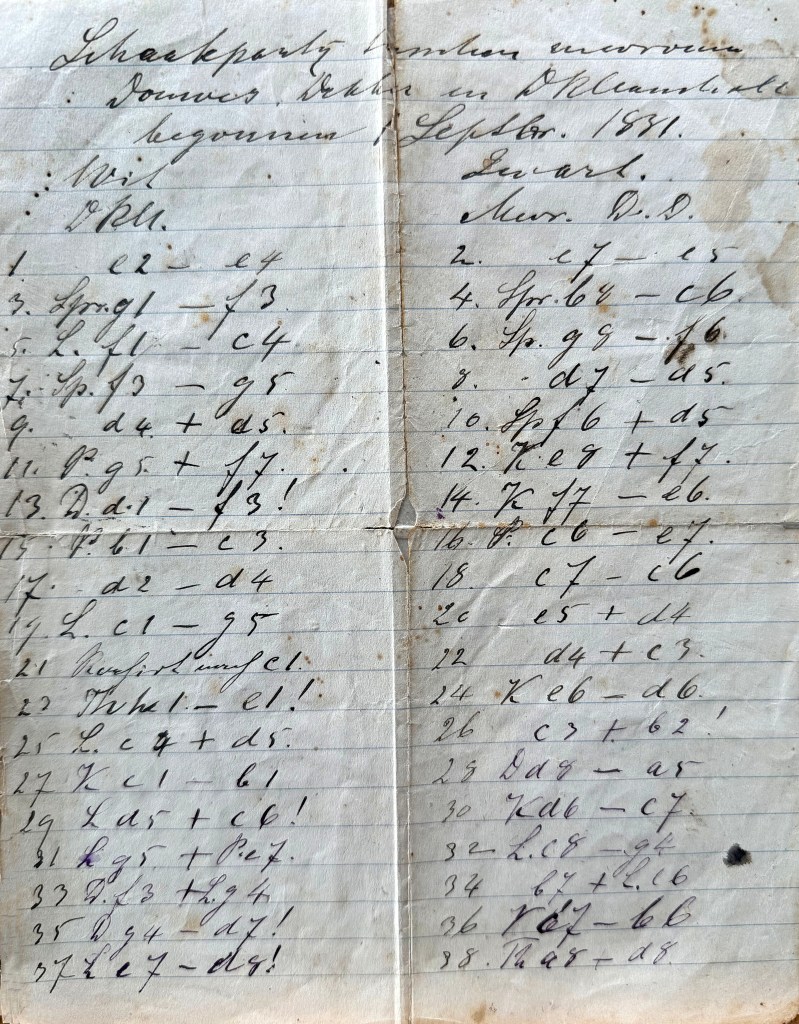 Schaakpartij tusschen mevrouw
Douwes Dekker en DKl
begonnen 1 Septbr. 1881.
Wit Zwart.
DKl. Mvr. D.D.
1 e2 – e4 2. e7 – e5
3. Spr. g1 – f3. 4. Spr. b8 – c6.
5. L. f1 – c4 6. Sp. g8 – f6.
7. Sp. f3 – g5 8. d7 – d5.
9. d4 + d5. 10. Sp f6 + d5
11. P. g5 + f7. 12. K e8 + f7.
13. D. d1 – f3! 14. K f7 – e6.
15. P. b1 – c3. 16. P. c6 – e7.
17. d2 – d4 18. c7 – c6
19. L. c1 – g5 20 e5 + d4
21 c1. 22 d4 + c3.
23 Th h1 – e1! 24 K e6 – d6.
25 L. c4 + d5. 26 c3 + b2!
27 K c1 – b1 28 D d8 – a5
29 L d5 + c6! 30 K d6 – c7.
31 L g5 + P.e7. 32 L. c8 – g4
33 D. f3 + L.g4 34 b7 + L.c6
35 D g4 – d7! 36 K c7 – b6
37 L e7 – d8! 38. Th a8 – d8.